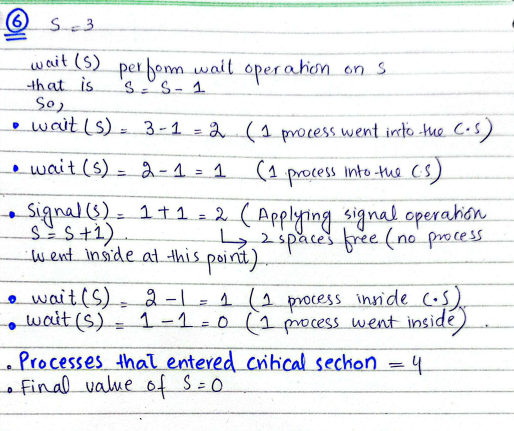 6 S = 3
wait (S) perform wait operation on s
that is S = S - 1
So,
• wait (S) = 3-1 = 2 (1 process went into the C.S)
• wait (S) = 2-1 = 1 (1 process into the CS)
• Signal (S) = 1+1 = 2 (Applying signal operation
S = S+1) ↳ 2 spaces free (no process
went inside at this point)
• wait (S) = 2-1 = 1 (1 process inside C.S)
• wait (S) = 1-1 = 0 (1 process went inside).
• Processes that entered critical section = 4
• Final value of S = 0